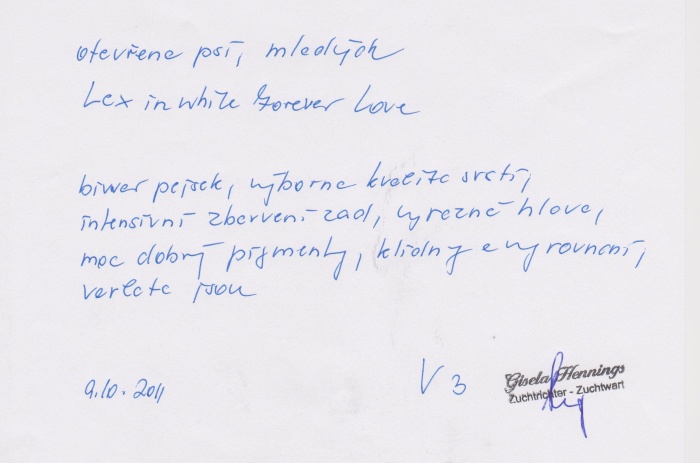 otevřena psí, mladých
Lex in white Forever Love
biwer pejsek, vyborna kvalita srsti,
intensivní zbarvení zad, vyrazná hlava,
moc dobrý pigmenty, klidny a vyrovnaní,
varlata jsou
9.10.2011
V 3
Gisela Hennings
Zuchtrichter - Zuchtwart